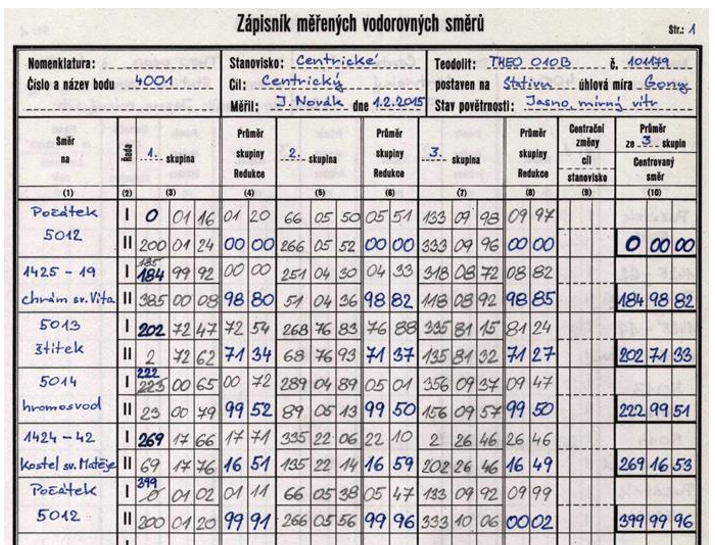 Zápisník měřených vodorovných směrů
Str.: 1
Nomenklatura:
Číslo a název bodu 4001
Stanovisko: Centrické
Cíl: Centrický
Měřil: J. Novák dne 1.2.2015
Teodolit: THEO 010B č. 101179
postaven na Stativu úhlová míra Gony
Stav povětrnosti: Jasno, mírný vítr
Směr na Řada 1. skupina Průměr skupiny Redukce 2. skupina Průměr skupiny Redukce 3. skupina Průměr skupiny Redukce Centrační změny cíl stanovisko Průměr ze 3 skupin Centrovaný směr
(1) (2) (3) (4) (5) (6) (7) (8) (9) (10)
Počátek I 0 01 16 01 20 66 05 50 05 51 133 09 98 09 97
5012 II 200 01 24 00 00 266 05 52 00 00 333 09 96 00 00 0 00 00
1425 - 19 I 185 184 99 92 00 00 251 04 30 04 33 318 08 72 08 82
chrám sv. Víta II 385 00 08 98 80 51 04 36 98 82 118 08 92 98 85 184 98 82
5013 I 202 72 47 72 54 268 76 83 76 88 335 81 15 81 24
štítek II 2 72 62 71 34 68 76 93 71 37 135 81 32 71 27 202 71 33
5014 I 222 223 00 65 00 72 289 04 89 05 01 356 09 37 09 47
hromosvod II 23 00 79 99 52 89 05 13 99 50 156 09 57 99 50 222 99 51
1424 - 42 I 269 17 66 17 71 335 22 06 22 10 2 26 46 26 46
kostel sv. Matěje II 69 17 76 16 51 135 22 14 16 59 202 26 46 16 49 269 16 53
Počátek I 399 0 01 02 01 11 66 05 38 05 47 133 09 92 09 99
5012 II 200 01 20 99 91 266 05 56 99 96 333 10 06 00 02 399 99 96
I